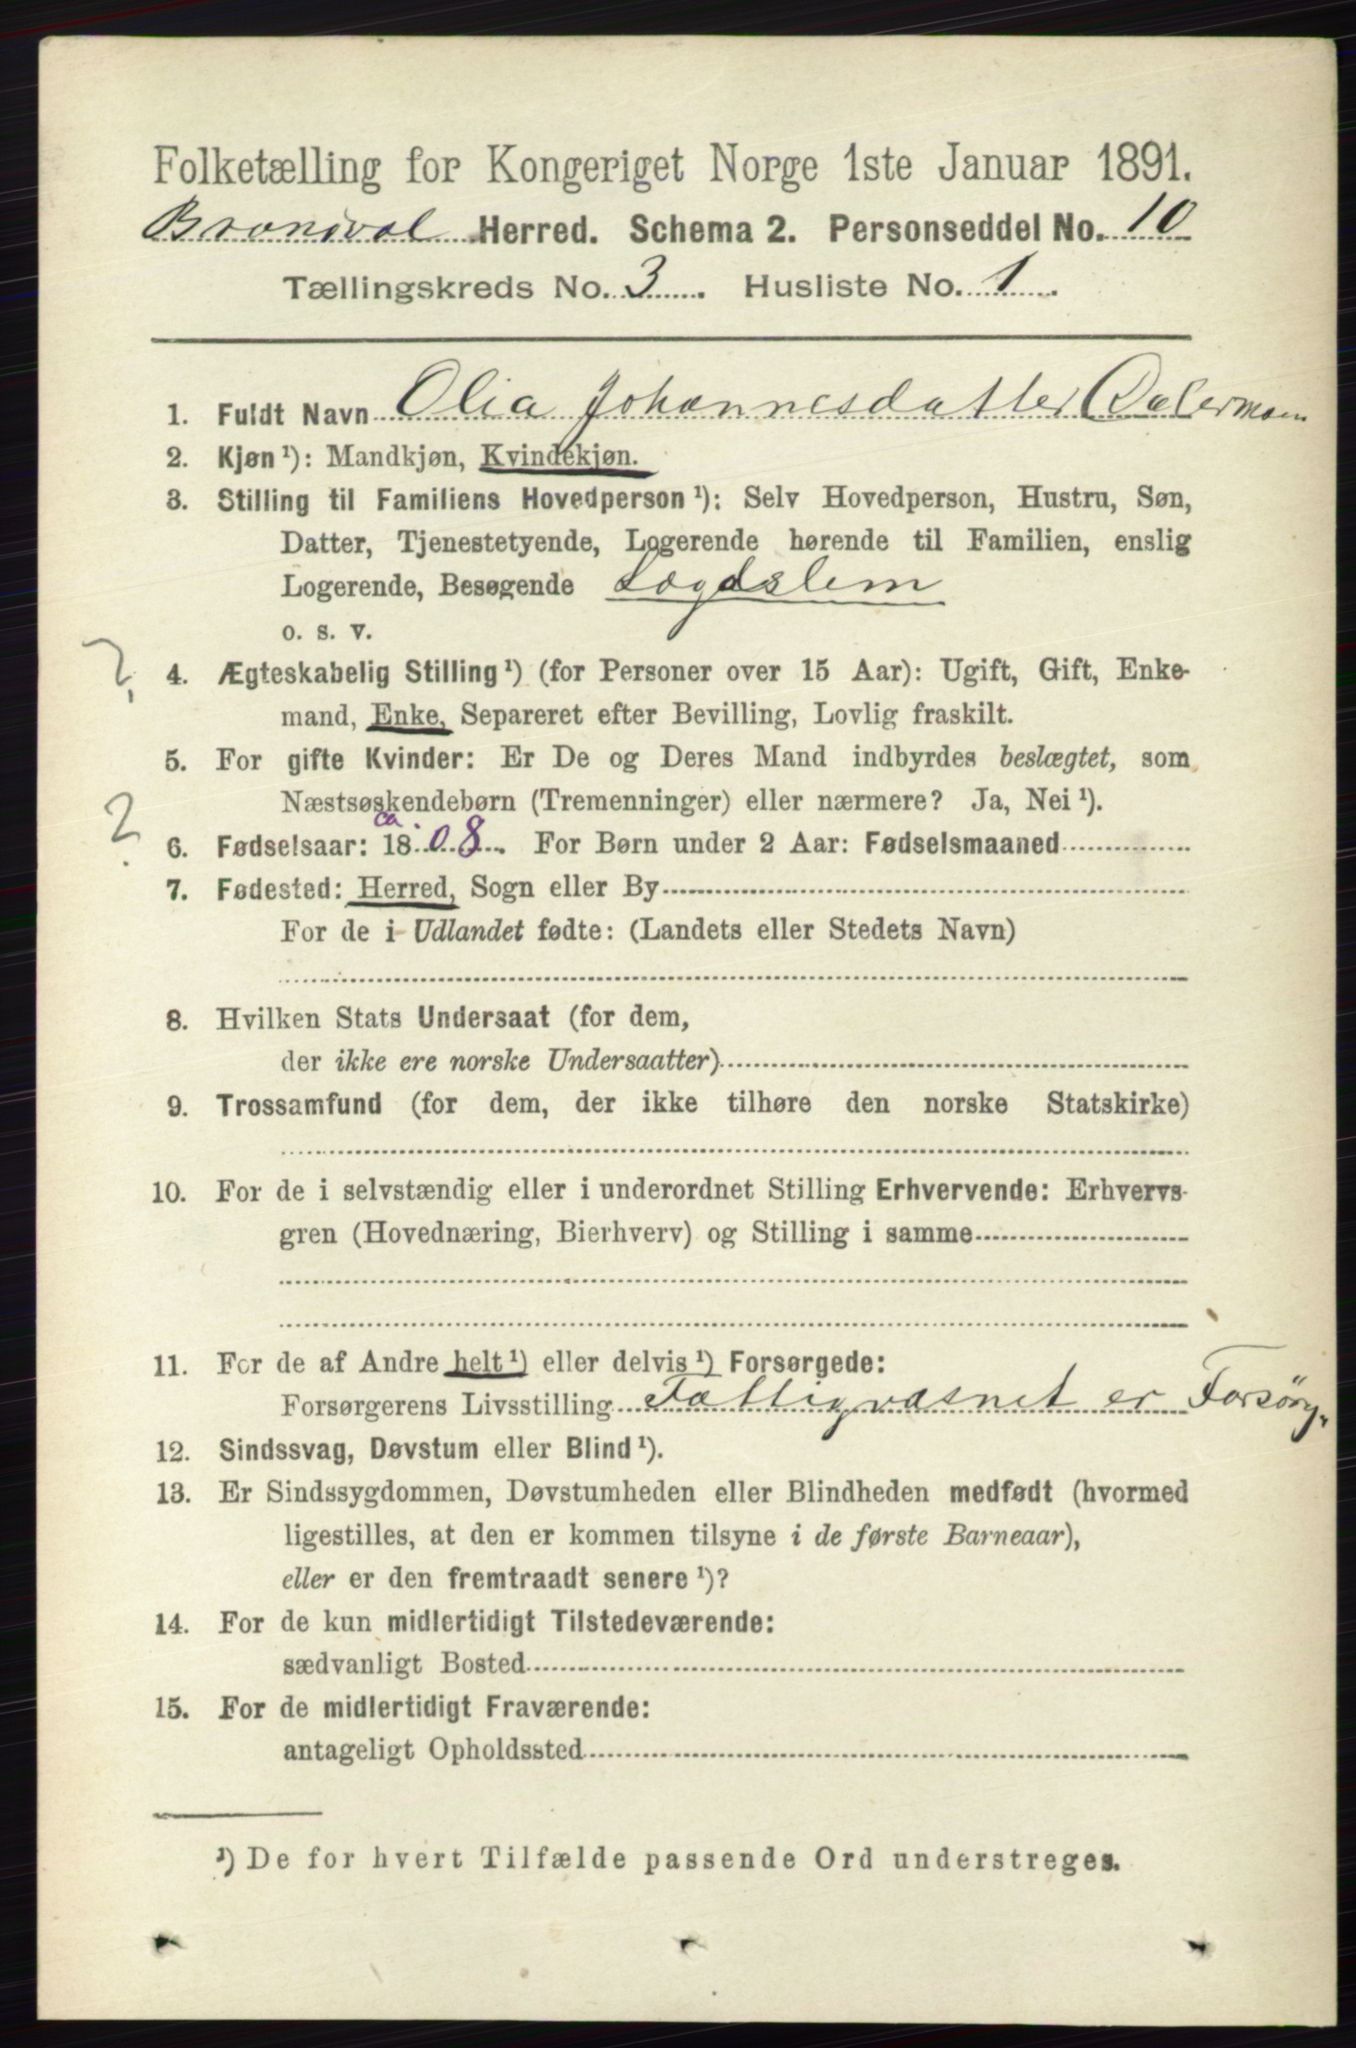 Folketælling for Kongeriget Norge 1ste Januar 1891.
Brandval Herred. Schema 2. Personseddel No. 10
Tællingskreds No. 3. Husliste No. 1.
1. Fuldt Navn Olia Johannesdatter
2. Kjøn ¹): Mandkjøn, Kvindekjøn.
3. Stilling til Familiens Hovedperson ¹): Selv Hovedperson, Hustru, Søn,
Datter, Tjenestetyende, Logerende hørende til Familien, enslig
Logerende, Besøgende Lægdslem
o. s. v.
? 4. Ægteskabelig Stilling ¹) (for Personer over 15 Aar): Ugift, Gift, Enke-
mand, Enke, Separeret efter Bevilling, Lovlig fraskilt.
5. For gifte Kvinder: Er De og Deres Mand indbyrdes beslægtet, som
Næstsøskendebørn (Tremenninger) eller nærmere? Ja, Nei ¹).
? 6. Fødselsaar: ca 1808. For Børn under 2 Aar: Fødselsmaaned
7. Fødested: Herred, Sogn eller By
For de i Udlandet fødte: (Landets eller Stedets Navn)
8. Hvilken Stats Undersaat (for dem,
der ikke ere norske Undersaatter)
9. Trossamfund (for dem, der ikke tilhøre den norske Statskirke)
10. For de i selvstændig eller i underordnet Stilling Erhvervende: Erhvervs-
gren (Hovednæring, Bierhverv) og Stilling i samme
11. For de af Andre helt ¹) eller delvis ¹) Forsørgede:
Forsørgerens Livsstilling Fattigvæsnet er Forsørg.
12. Sindssvag, Døvstum eller Blind ¹).
13. Er Sindssygdommen, Døvstumheden eller Blindheden medfødt (hvormed
ligestilles, at den er kommen tilsyne i de første Barneaar),
eller er den fremtraadt senere ¹)?
14. For de kun midlertidigt Tilstedeværende:
sædvanligt Bosted
15. For de midlertidigt Fraværende:
antageligt Opholdssted
¹) De for hvert Tilfælde passende Ord understreges.